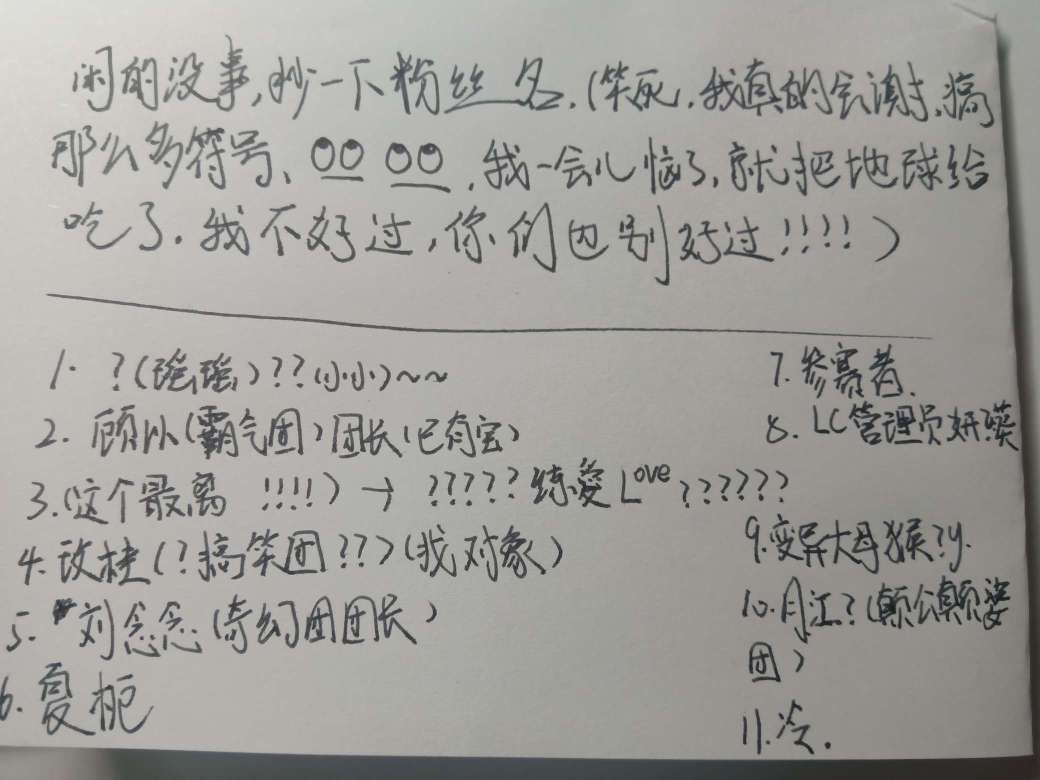 闲的没事,抄一下粉丝名.(笑死.我真的会谢,搞
那么多符号、 我一会儿恼了,就把地球给
吃了.我不好过,你们也别好过!!!!)
1. ?(瑶瑶)??(小小)~~
2. 顾从(霸气团)团长(已有宝)
3.(这个最离 !!!!)→ ?????练爱Love??????
4. 玫桂(?搞笑团??)(我对象)
5. 刘念念(奇幻团团长)
6. 夏栀
7. 参赛者.
8. LC管理员妍
9.变异大母猴?y.
10.月江?(颠公颠婆
团)
11.冷.